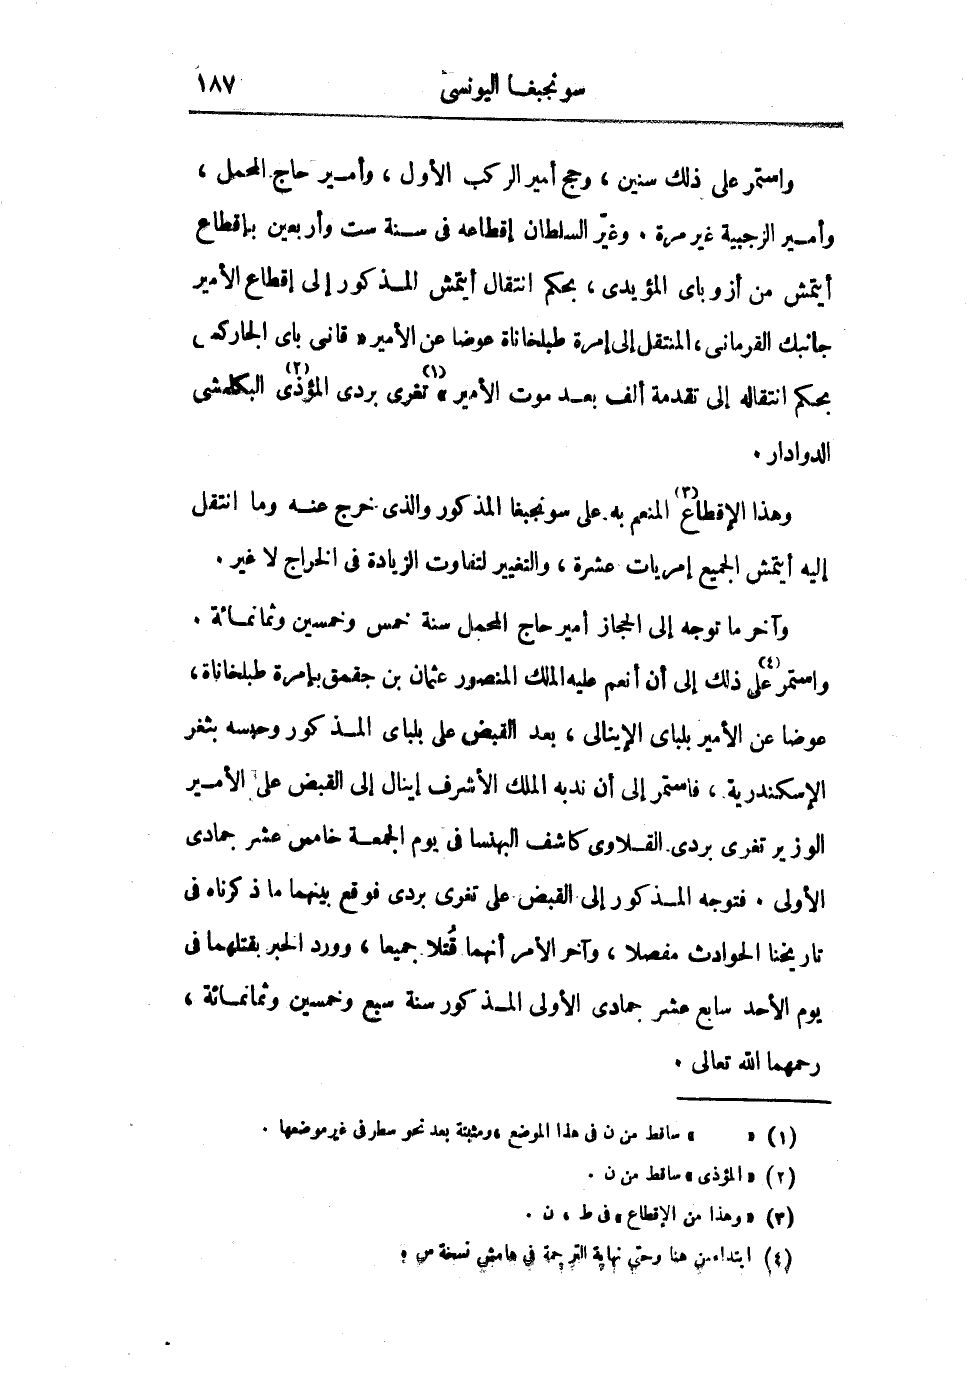 سونجبغا اليونسى ١٨٧
واستمر على ذلك سنين ، وحج أمير الركب الأول ، وأمـير حاج المحمل ،
وأمـير الرجبية غير مرة . وغيّر السلطان إقطاعه فى سـنة ست وأربعين بإقطاع
أيتمش من أزوباى المؤيدى ، بحكم انتقال أيتمش المـذكور إلى إقطاع الأمير
جانبك القرمانى ، المنتقل إلى إمرة طبلخاناة عوضا عن الأمير « قانى باى الجاركسى
بحكم انتقاله إلى تقدمة ألف بعـد موت الأمير »(١) تغرى بردى المؤذى(٢) البكلمشى
الدوادار .
وهذا الإقطاع(٣) المنعم به على سونجبغا المذكور والذى خرج عنـه وما انتقل
إليه أيتمش الجميع إمريات عشرة ، والتغيير لتفاوت الزيادة فى الخراج لا غير .
وآخر ما توجه إلى الحجاز أمير حاج المحمل سنة خمس وخمسين وثمانمـائة .
واستمر(٤) على ذلك إلى أن أنعم عليه الملك المنصور عثمان بن جقمق بإمرة طبلخاناة ،
عوضا عن الأمير يلباى الإينالى ، بعد القبض على يلباى المـذكور وحبسه بثغر
الإسكندرية ، فاستمر إلى أن ندبه الملك الأشرف إينال إلى القبض على الأمـير
الوزير تغرى بردى القـلاوى كاشف البهنسا فى يوم الجمعـة خامس عشر جمادى
الأولى . فتوجه المـذكور إلى القبض على تغرى بردى فوقع بينهما ما ذكرناه فى
تاريخنا الحوادث مفصلا ، وآخر الأمر أنهما قُتلا جميعا ، وورد الخبر بقتلهما فى
يوم الأحد سابع عشر جمادى الأولى المـذكور سنة سبع وخمسين وثمانمـائة ،
رحمهما الله تعالى .
(١) « » ساقط من ن فى هذا الموضع ، ومثبتة بعد نحو سطر فى غير موضعها .
(٢) « المؤذى » ساقط من ن .
(٣) « وهذا من الإقطاع » فى ط ، ن .
(٤) ابتداء من هنا وحتى نهاية الترجمة فى هامش نسخة س